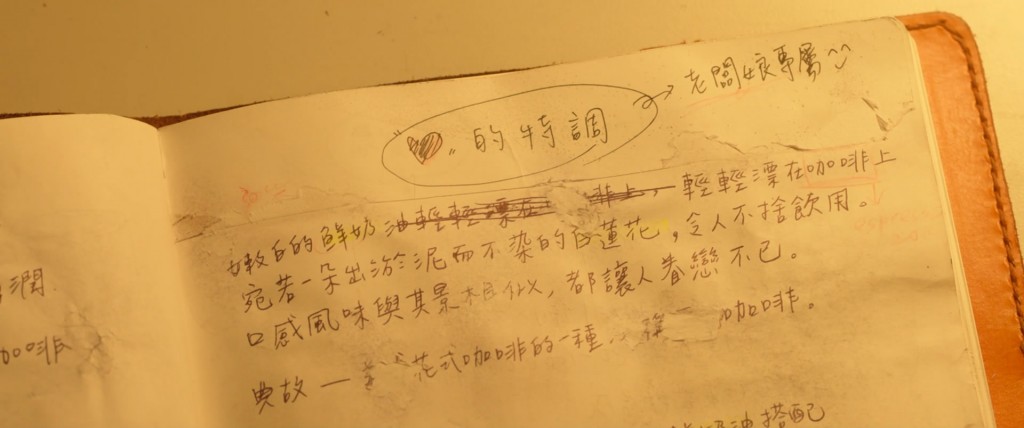 老闆娘專屬^^
的特調
嫩白的鮮奶油輕輕漂在 啡上，輕輕漂在咖啡上
宛若一朵出淤泥而不染的白蓮花，令人不捨飲用。
口感風味與其景相似，都讓人眷戀不已。
典故一 花式咖啡的一種， 咖啡。
油搭配
潤
咖啡